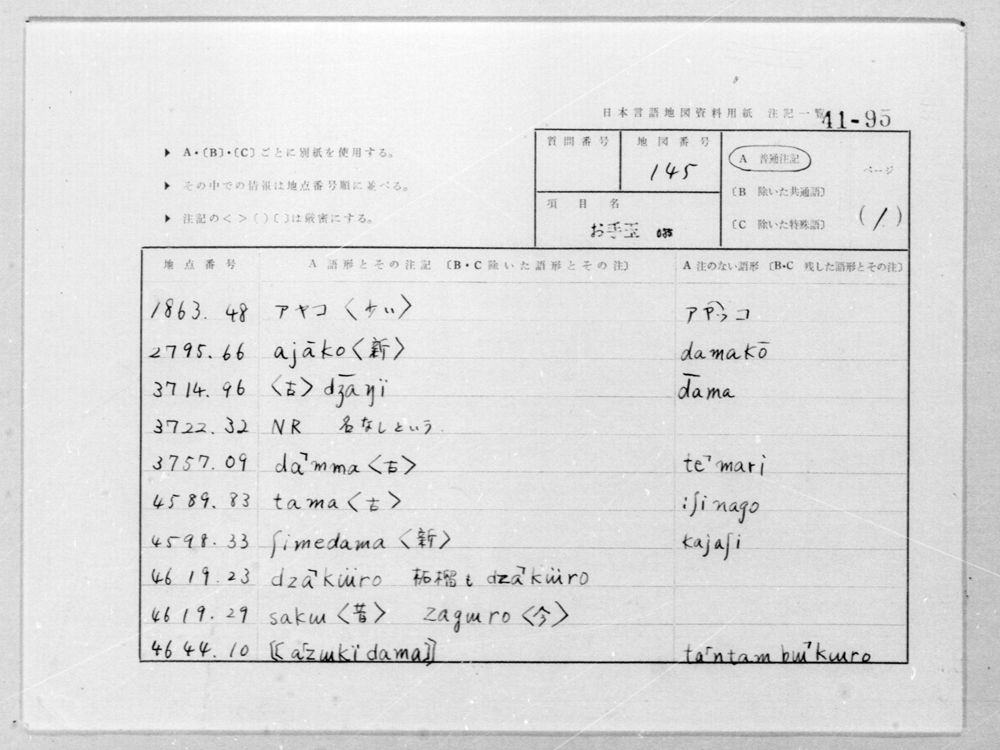 日本言語地図資料用紙 注記一覧
41-95
▶ A・〔B〕・〔C〕ごとに別紙を使用する。
▶ その中での情報は地点番号順に並べる。
▶ 注記の< >( )〔 〕は厳密にする。
質問番号 地図番号
145
項目名
お手玉
A 普通注記
〔B 除いた共通語〕
〔C 除いた特殊語〕
ページ
(1)
地点番号 A 語形とその注記 〔B・C 除いた語形とその注〕 A 注のない語形 〔B・C 残した語形とその注〕
1863.48 アヤコ〈少い〉
2795.66 ajāko〈新〉 damakō
3714.96 〈古〉 d̄ama
3722.32 NR 名なしという
3757.09 da˺mma〈古〉 te˺mari
4589.83 tama〈古〉 iʃinago
4598.33 ʃimedama〈新〉 kajaʃi
4619.23 dza˺kɯ̈ro 柘榴も dza˺kɯ̈ro
4619.29 sakɯ〈昔〉 zagɯro〈今〉
4644.10 〚a˹zɯkï dama〛 ta˹ntam bɯ˺kɯro